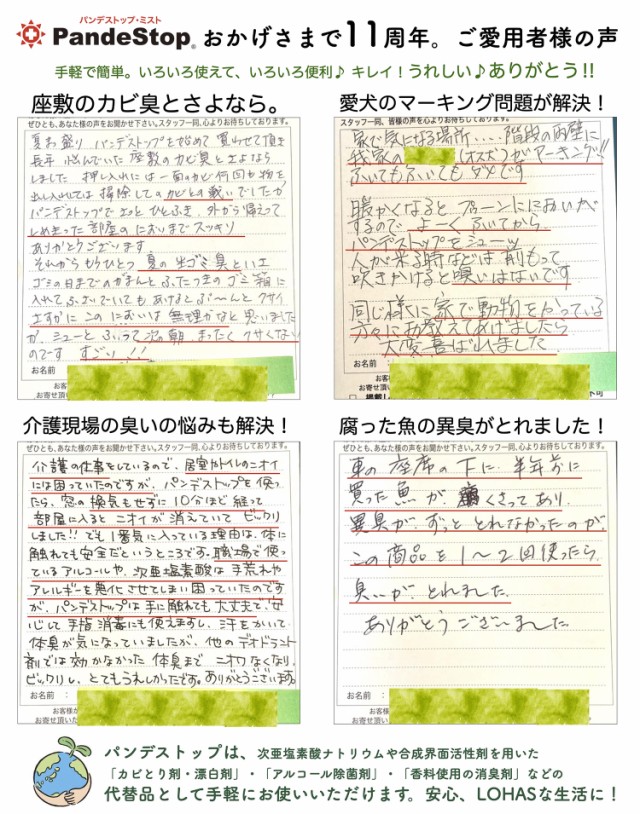 パンデストップ・ミスト
PandeStop® おかげさまで11周年。ご愛用者様の声
手軽で簡単。いろいろ使えて、いろいろ便利♪ キレイ！うれしい♪ありがとう!!
座敷のカビ臭とさよなら。
ぜひとも、あなた様の声をお聞かせ下さい。スタッフ一同、心よりお待ちしております。
夏お盛り パンデストップを始めて 買わせて頂き
長年 悩んでいた 座敷のカビ臭とさよなら
しました 押入れには一面のカビ 何回か物を
出し入れては 掃除してのカビとの戦いでしたが
パンデストップでエッと ひとふき、外から帰えって
しめきった部屋の においまで スッキリ
ありがとうございます。
それから もうひとつ 夏の生ゴミ臭といえ
ゴミの日までのがまんと ふたつきのゴミ箱に
入れて ふさいでいても あけるとぷ〜んと クサイ
ですがに この においは 無理かなと 思いました
が、ミューと ふって 次の朝 まったく クサくない
のです すごい!!
お名前
愛犬のマーキング問題が解決！
スタッフ一同、皆様の声を心よりお待ちしております。
家で気になる場所.... 階段の両壁に
我家の (オス犬)がマーキング!!
ふいてもふいても ダメです
暖かくなると プゥーンとにおいが
するので よーく ふいてから
パンデストップをシューッ
人が来る時などは 前もって
吹きかけると嗅いはないです
同じ様に家で動物をやっている
方々にお教えてあげましたら
大変喜ばれました
お名前
介護現場の臭いの悩みも解決！
ぜひとも、あなた様の声をお聞かせ下さい。スタッフ一同、心よりお待ちしております。
介護の仕事をしているので、居室やトイレのニオイ
には困っていたのですが、パンデストップを使っ
たら、窓の換気もせずに 10分ほど経って
部屋に入ると ニオイが消えていて ビックリ
しました!! でも1番気に入っている理由は、体に
触れても安全だというところです。職場で使っ
ているアルコールや、次亜塩素酸は 手荒れや
アレルギーを悪化させてしまい困っていたのです
が、パンデストップは手に触れても 大丈夫で、安
心して 手指消毒にも使えますし、汗をかいて
体臭が気になっていましたが、他のデオドラント
剤では効かなかった 体臭まで ニオわなくなり、
ビックリし、とてもうれしかったです。ありがとうございます。
お名前 :
腐った魚の異臭がとれました！
ぜひとも、あなた様の声をお聞かせ下さい。スタッフ一同、心よりお待ちしております。
車の座席の下に 半年前に
買った魚が くさってあり
異臭が、ずっと とれなかったのが、
この商品を 1〜2回使ったら、
臭いが、とれました。
ありがとうございました
お名前 :
パンデストップは、次亜塩素酸ナトリウムや合成界面活性剤を用いた
「カビとり剤・漂白剤」・「アルコール除菌剤」・「香料使用の消臭剤」などの
代替品として手軽にお使いいただけます。安心、LOHASな生活に！